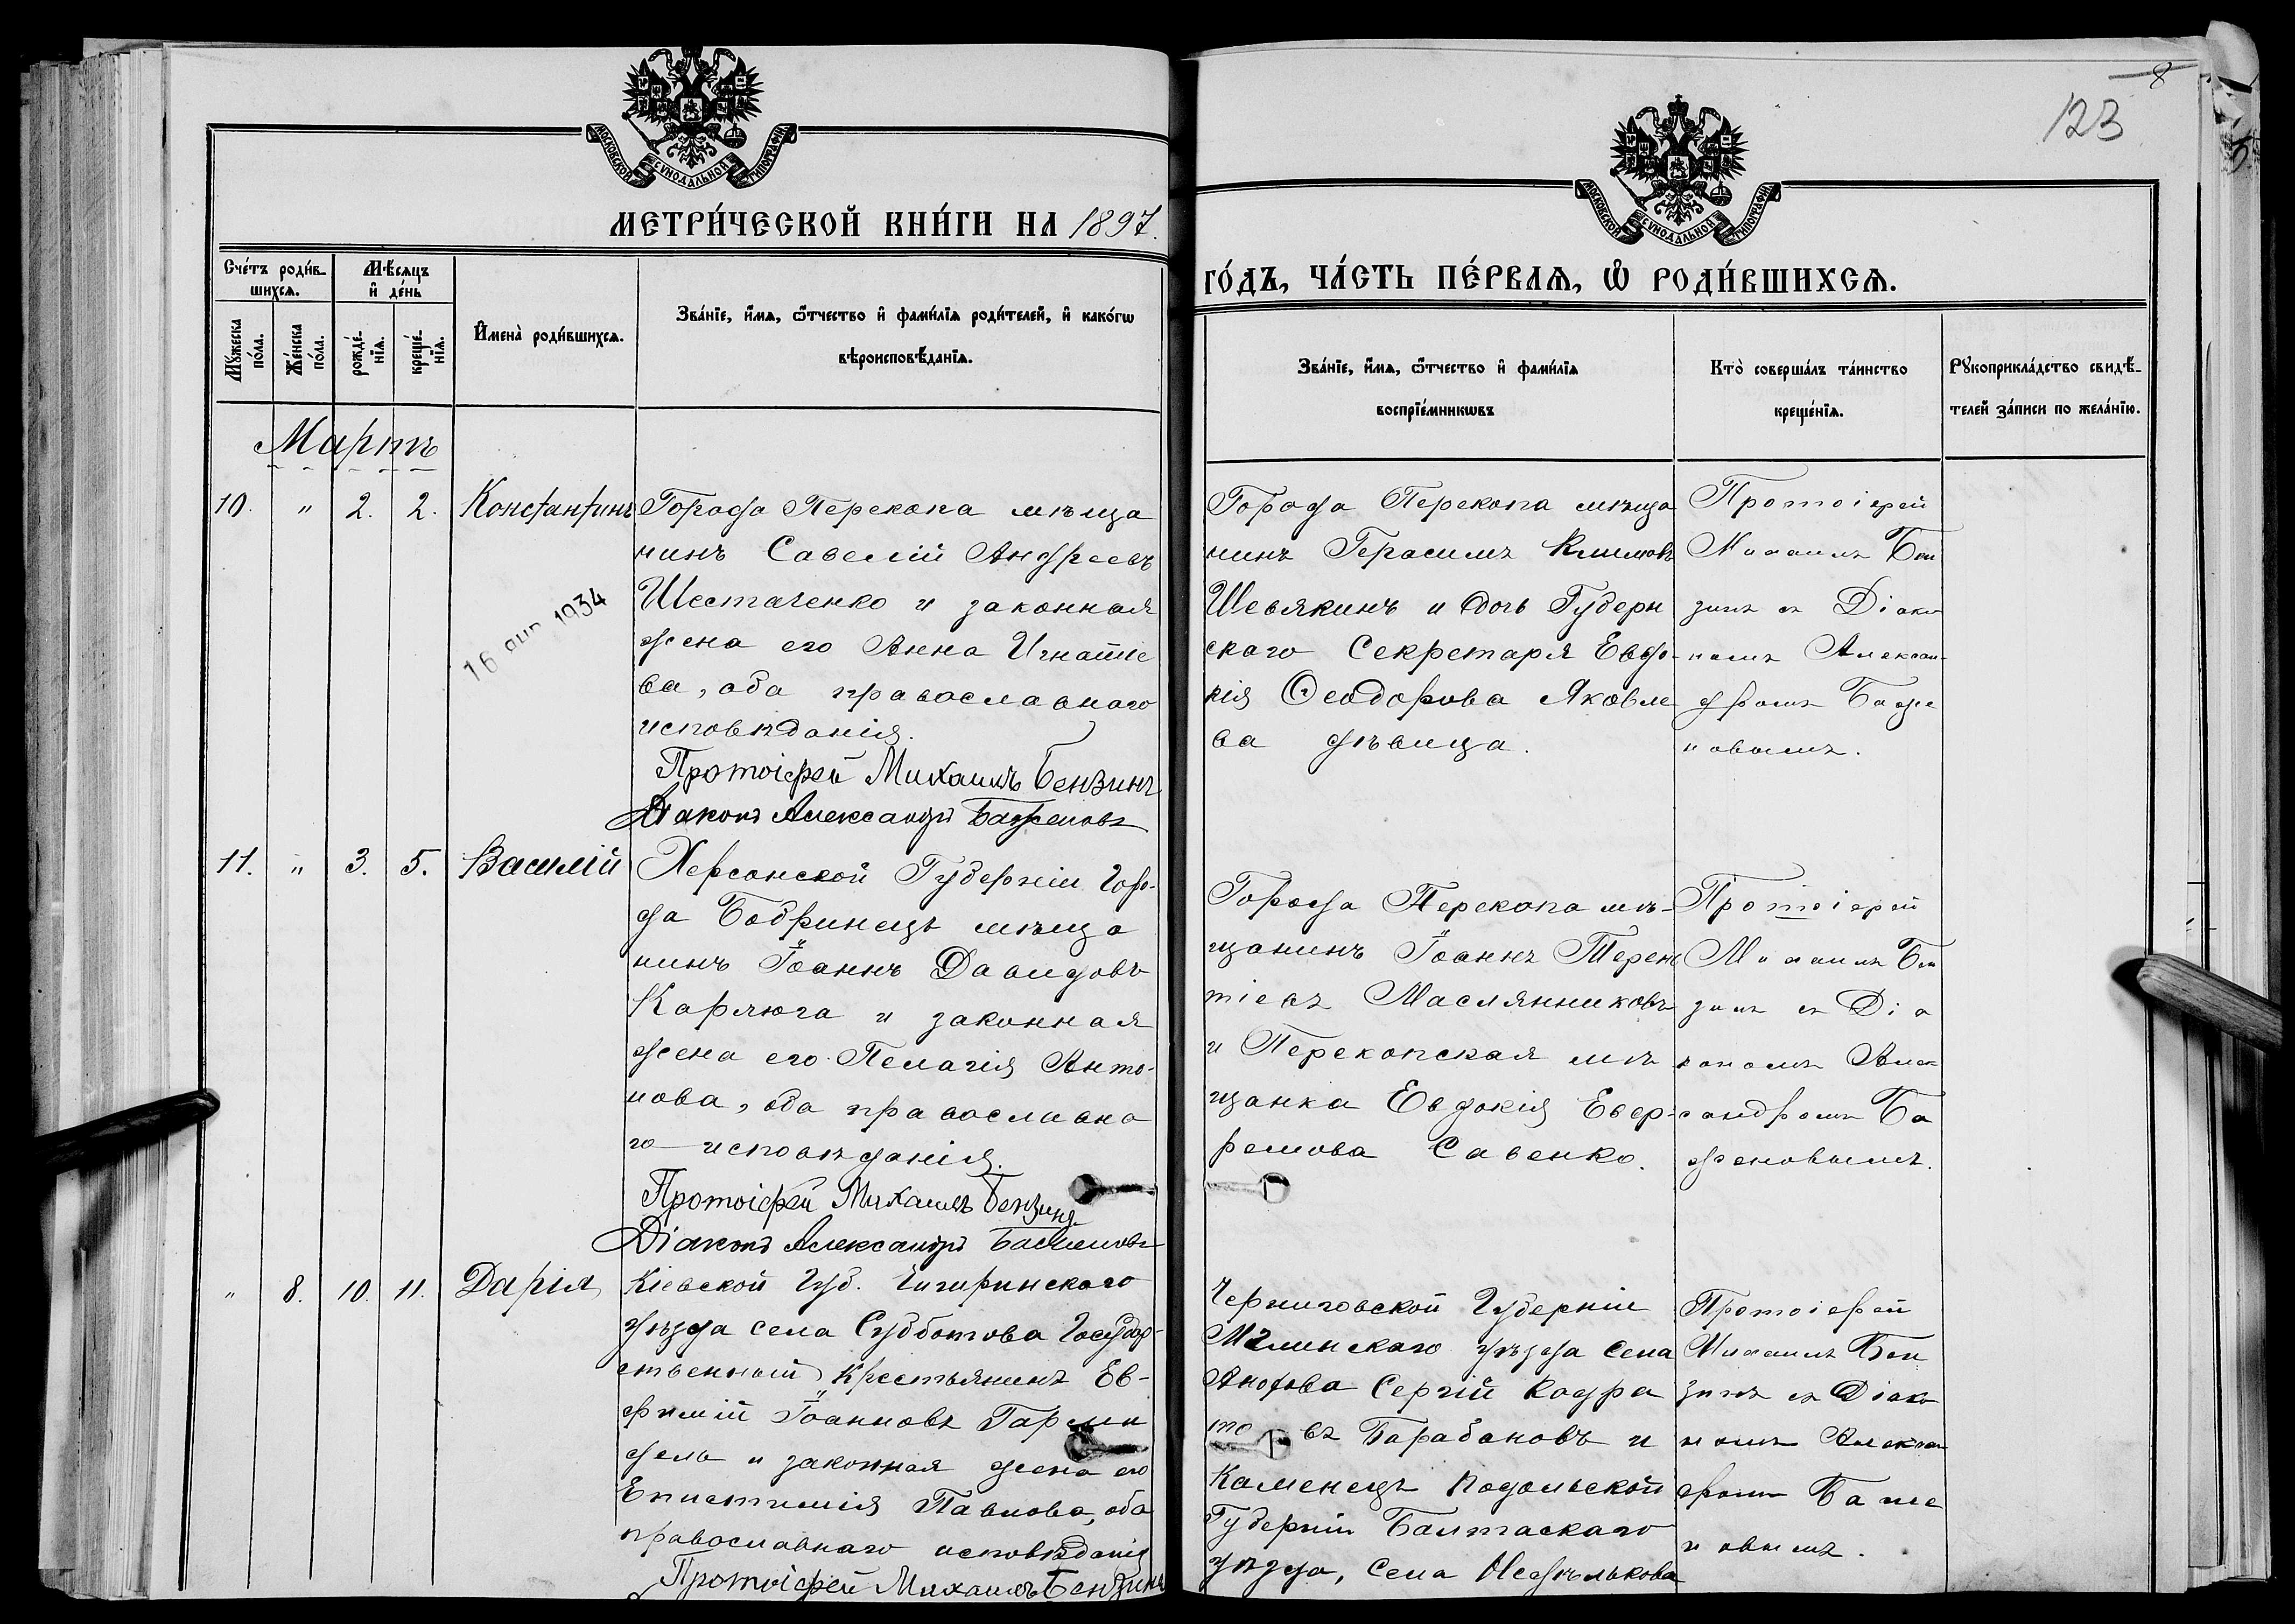 8
123
МОСКОВСКОЙ СУНОДАЛЬНОЙ ТИПОГРАФІИ
МОСКОВСКОЙ СУНОДАЛЬНОЙ ТИПОГРАФІИ
МЕТРИ́ЧЕСКОЙ КНИ́ГИ НА 1897.
ГО́ДЪ, ЧА́СТЬ ПЕ́РВАѦ, Ѡ҆ РОДИ́ВШИХСѦ.
Сче́тъ роди́в-
шихсѧ.
Мѣ́сѧцъ
и҆ де́нь
Мꙋ́жеска
по́ла.
Же́нска
по́ла.
рожде́-
нїѧ.
креще́-
нїѧ.
И҆мена̀ роди́вшихсѧ.
Зва́нїе, и҆́мѧ, ѻ҆́тчество и҆ фами́лїѧ роди́телей, и҆ како́гѡ
вѣроисповѣ́данїѧ.
Зва́нїе, и҆́мѧ, ѻ҆́тчество и҆ фами́лїѧ
воспрїе́мникѡвъ
Кто̀ соверша́лъ та́инство
креще́нїѧ.
Рꙋкоприкла́дство свидѣ́-
телей за́писи по жела́нїю.
Мартъ
10. " 2. 2. Константинъ
Города Перекопа мѣща
нинъ Савелій Андреевъ
Шестаченко и законная
жена его Анна Игнатье
ва, оба православнаго
исповѣданія.
Протоіерей Михаилъ Бензинъ
Діаконъ Александръ Баженовъ
16 апр 1934
Города Перекопа мѣща
нинъ Герасимъ Климовъ
Шевякинъ и дочь Губерн
скаго Секретаря Евдо-
кія Ѳеодорова Яковле
ва дѣвица.
Протоіерей
Михаилъ Бен
зинъ съ Діако
номъ Алексан-
дромъ Баже
новымъ.
11. " 3. 5. Василій
Херсонской Губерніи горо-
да Бобринецъ мѣща
нинъ Іоаннъ Давидовъ
Карлюга и законная
жена его Пелагія Анто-
нова, оба православна
го исповѣданія.
Протоіерей Михаилъ Бензинъ
Діаконъ Александръ Баженовъ
Города Перекопа мѣ-
щанинъ Іоаннъ Терен
тіевъ Маслянниковъ
и Перекопская мѣ
щанка Евдокія Евер-
ремова Савенко.
Протоіерей
Михаилъ Бен
зинъ съ Діа
кономъ Алек
сандромъ Ба
женовымъ.
" 8. 10. 11. Дарія
Кіевской Губ. Чигиринскаго
уѣзда села Субботова Государ-
ственный крестьянинъ Ев-
фимій Іоанновъ
и законная жена его
Епистимія Павлова, оба
православнаго исповѣданія
Протоіерей Михаилъ Бензинъ
Черниговской Губерніи
Мглинскаго уѣзда села
Сергій Кодра
то въ Барабановъ и
Каменецъ Подольской
Губерніи Балтаскаго
уѣзда, села
Протоіерей
Михаилъ Бен
зинъ съ Діако
номъ Алексан
дромъ Баже
новымъ.